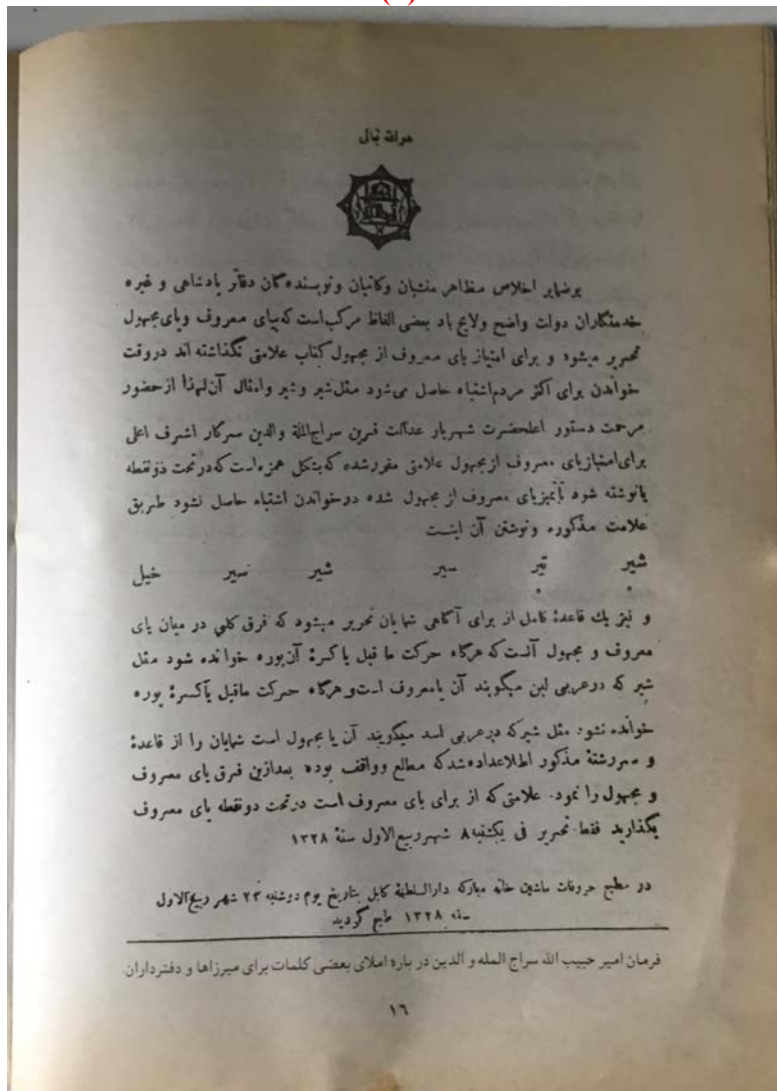 هوالله تعالی
برضمایر اخلاص مظاهر منشیان وکاتبان ونویسنده‌گان دفاتر پادشاهی و غیره
خدمتگاران دولت واضح ولایح باد بعضی الفاظ مرکب است که بیای معروف ویای مجهول
تحریر میشود و برای امتیاز یای معروف از مجهول کتاب علامتی نگذاشته اند دروقت
خواندن برای اکثر مردم اشتباه حاصل می‌شود مثل شیر وشیر وامثال آن لهذا از حضور
مرحمت دستور اعلحضرت شهریار عدالت قرین سراج‌الملة والدین سرکار اشرف اعلی
برای امتیاز یای معروف از مجهول علامتی مقررشده که بشکل همزه است که در تحت دونقطه
یانوشته شود تا تمیز یای معروف از مجهول شده درخواندن اشتباه حاصل نشود طریق
علامت مذکوره ونوشتن آن اینست
شیر تیر سیر شیر سیر خیل
و نیز یك قاعدهٔ کامل از برای آگاهی شمایان تحریر میشود که فرق کلی در میان یای
معروف و مجهول آنست که هرگاه حرکت ما قبل یا کسرهٔ آن بوره خوانده شود مثل
شیر که درعربی لبن میگویند آن یامعروف است وهرگاه حرکت ماقبل یاکسرهٔ بوره
خوانده نشود مثل شیرکه درعربی اسد میگویند آن یا مجهول است شمایان را از قاعدهٔ
و سررشتهٔ مذکور اطلاعداده شد که مطلع وواقف بوده بعدازین فرق یای معروف
و مجهول را نمود. علامتی که از برای یای معروف است درتحت دونقطه یای معروف
بگذارید فقط تحریر فی یکشنبه ۸ شهر ربیع‌الاول سنهٔ ۱۳۲۸
در مطبع حروفات ماشین خانه مبارکه دارالسلطنهٔ کابل بتاریخ یوم دوشنبه ۲۳ شهر ربیع‌الاول
سنه ۱۳۲۸ طبع گردید
فرمان امیر حبیب الله سراج المله و الدین در باره املای بعضی کلمات برای میرزاها و دفترداران
۱۶